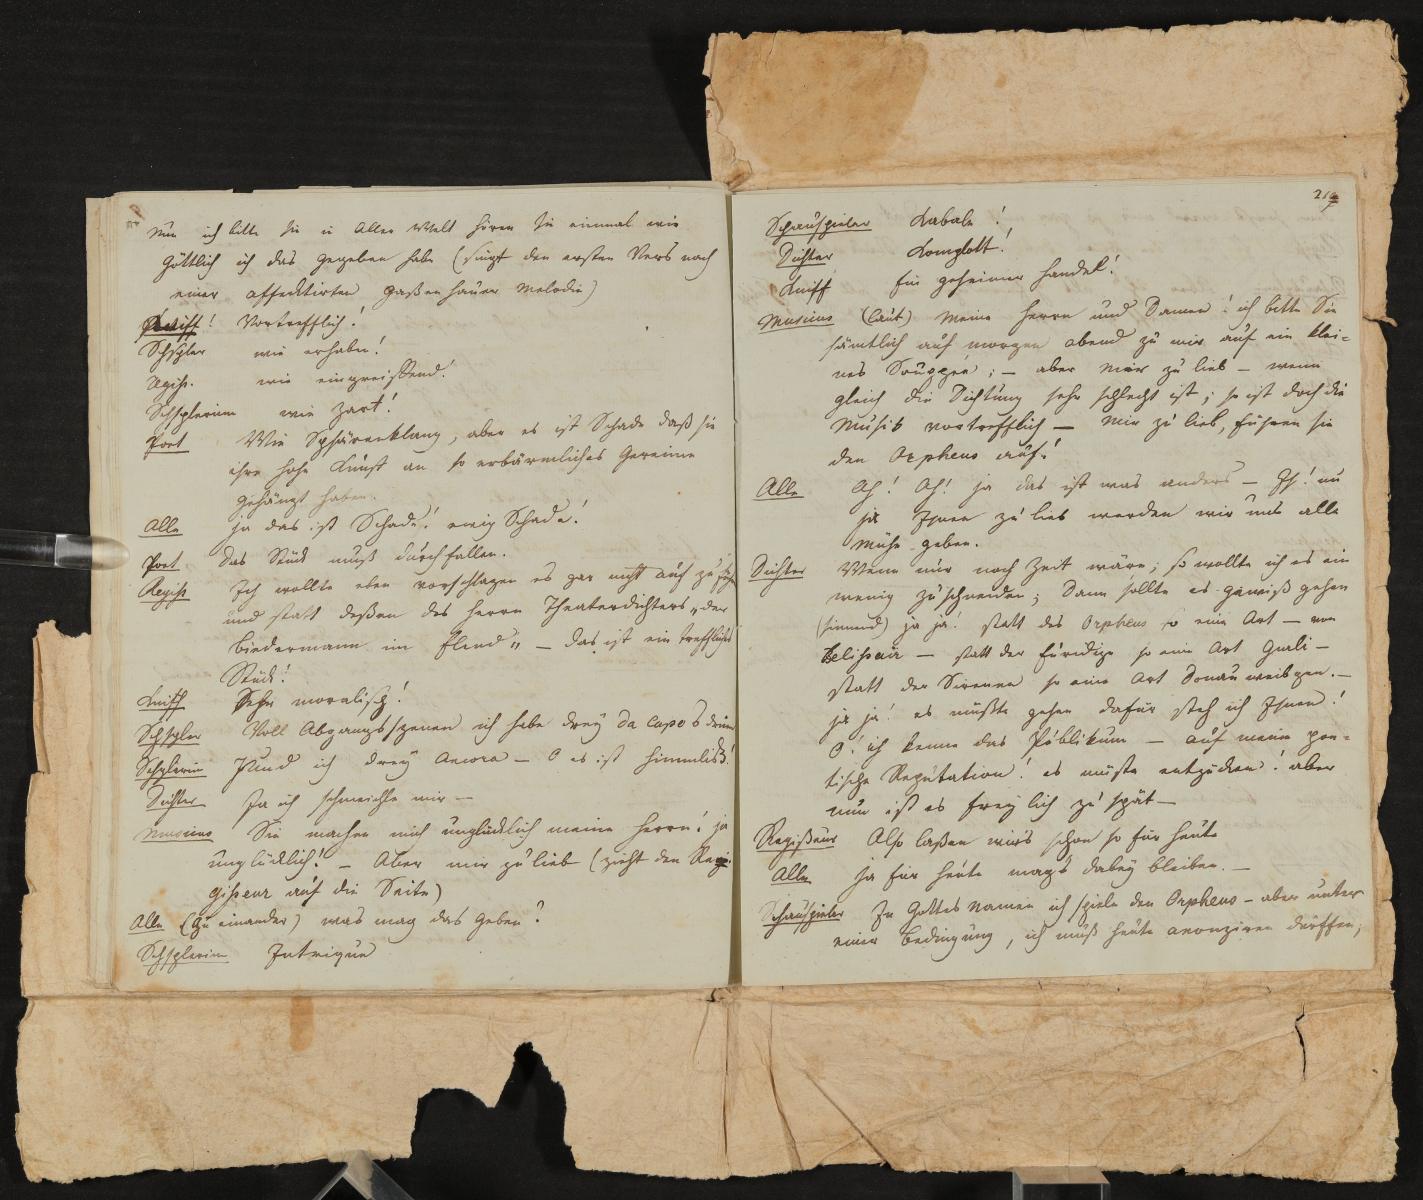 Nun ich bitte Sie in aller Welt hören Sie einmal wie
göttlich ich das gegeben habe (singt den ersten Vers nach
einer affecktirten Gaßenhauer Melodie)
Kniff! Vortrefflich!
Schspler wie erhaben!
Regiss. wie eingreiffend!
Schsplerinn wie zart!
Poet Wie Sphärenklang, aber es ist Schade daß sie
ihre hohe Kunst an so erbärmliches Gereime
gehängt haben.
Alle ja das ist Schade! ewig Schade!
Poet das Stück muß durchfallen.
Regiss Ich wollte eben vorschlagen es gar nicht auf zu führ
und statt deßen des Herrn Theaterdichters „der
Biedermann im Elend„ — das ist ein treffliches
Stück!
Kniff Sehr moralisch!
Schspler Voll Abgangsszenen ich habe drey da capo's drinn
Schsplerin Jund ich drey Ancora — O es ist himmlisch!
Dichter Ja ich schmeichle mir —
Musicus Sie machen mich unglücklich meine Herrn! ja
unglücklich! — Aber mir zu lieb (zieht den Regi
gisseur auf die Seite)
Alle (zu einander) was mag das geben?
Schsplerin Intrigue
217
Schauspieler Kabale!
Dichter Komplott!
Kniff Ein geheimer Handel!
Musicus (laut) Meine Herrn und Damen! ich bitte Sie
sämtlich auf morgen abend zu mir auf ein klei=
nes Souppée; — aber mir zu lieb — wenn
gleich die Dichtung sehr schlecht ist, so ist doch die
Musik vortrefflich — mir zu lieb, führen sie
den Orpheus auf!
Alle Ah! Ah! ja das ist was anders — Ih! nu
ja Ihnen zu lieb werden wir uns alle
Mühe geben.
Dichter Wenn nur noch Zeit wäre, so wollte ich es ein
wenig zuschneiden; dann sollte es gewiß gehen
(sinnend) ja ja! statt des Orpheus so eine Art — von
Belissair — statt der Euridize so eine Art Gurli —
statt der Sirenen so eine Art Donauweibchen. —
ja ja! es müßte gehen dafür steh ich Ihnen!
O! ich kenne das Publikum — auf meine poe=
tische Reputation! es müßte entzücken! aber
nun ist es freylich zu spät —
Regißeur Also laßen wirs schon so für heute
Alle Ja für heute mags dabey bleiben. —
Schauspieler In Gottes Namen ich spiele den Orpheus — aber unter
einer Bedingung, ich muß heute anonziren dürffen,